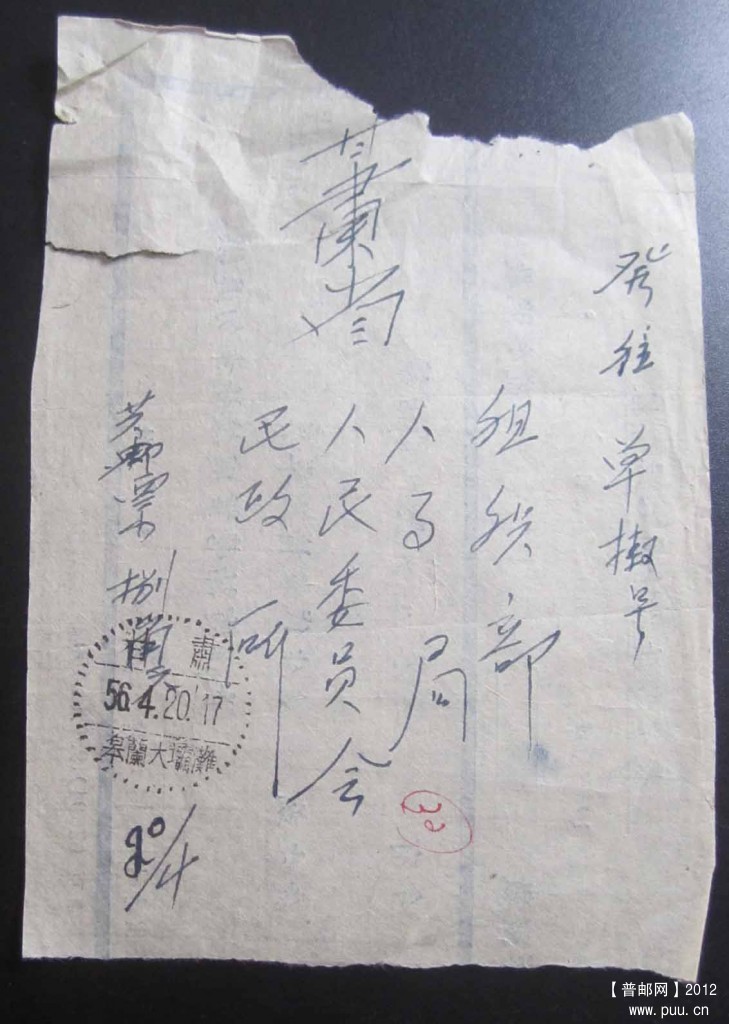 发往 单挂号
组织部
人事局
人民委员会
民政所
甘肃省
共邮票捌角
肃
56.4.20.17
皋蘭大壩灘
20/4
30
【普邮网】2012
www.puu.cn